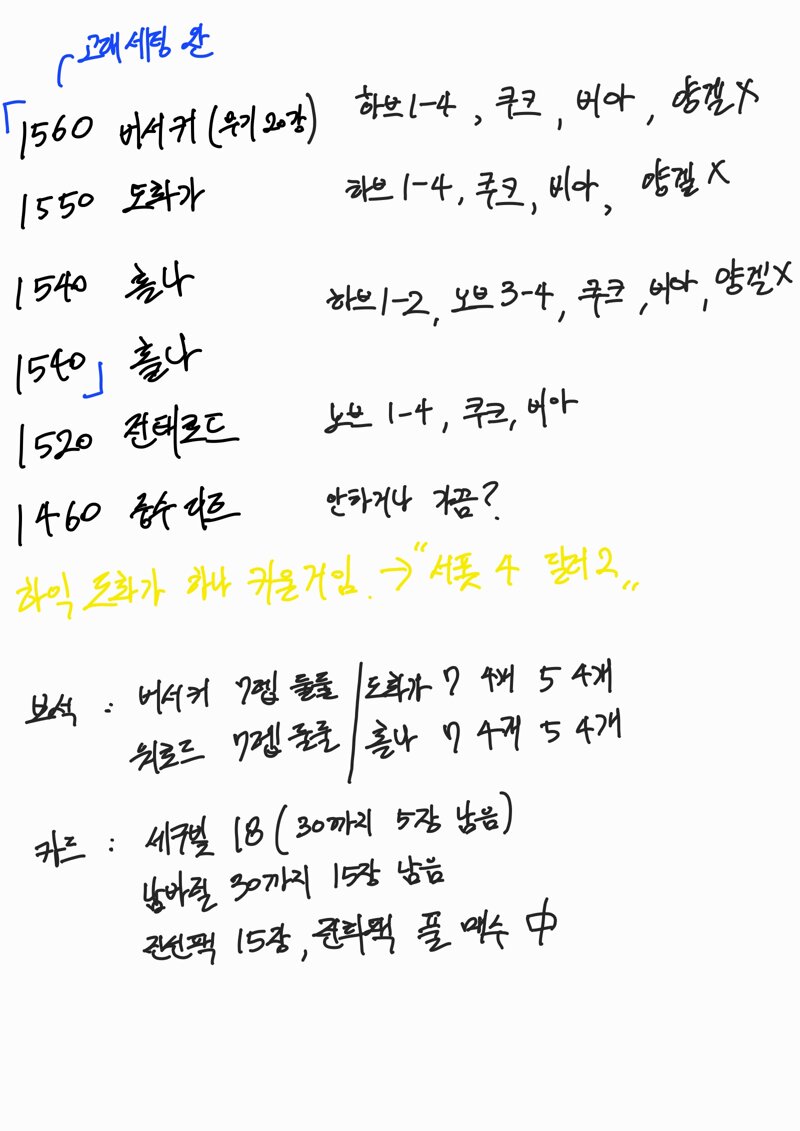 고대세팅 완
「1560 버서커 (무기 20강) 하브 1-4, 쿠크, 비아, 양겔 X
1550 도화가 하브 1-4, 쿠크, 비아, 양겔 X
1540 홀나 하브 1-2, 노브 3-4, 쿠크, 비아, 양겔 X
1540」 홀나
1520 전태로드 노브 1-4, 쿠크, 비아
1460 중수 디트 안하거나 가끔?
하익 도화가 하나 키울거임. → "서폿 4 딜러 2"
보석 : 버서커 7렙 둘둘 / 도화가 7 4개 5 4개
워로드 7렙 둘둘 / 홀나 7 4개 5 4개
카드 : 세구빛 18 (30까지 5장 남음)
남바절 30까지 15장 남음
전선팩 15장, 풀 매수 中